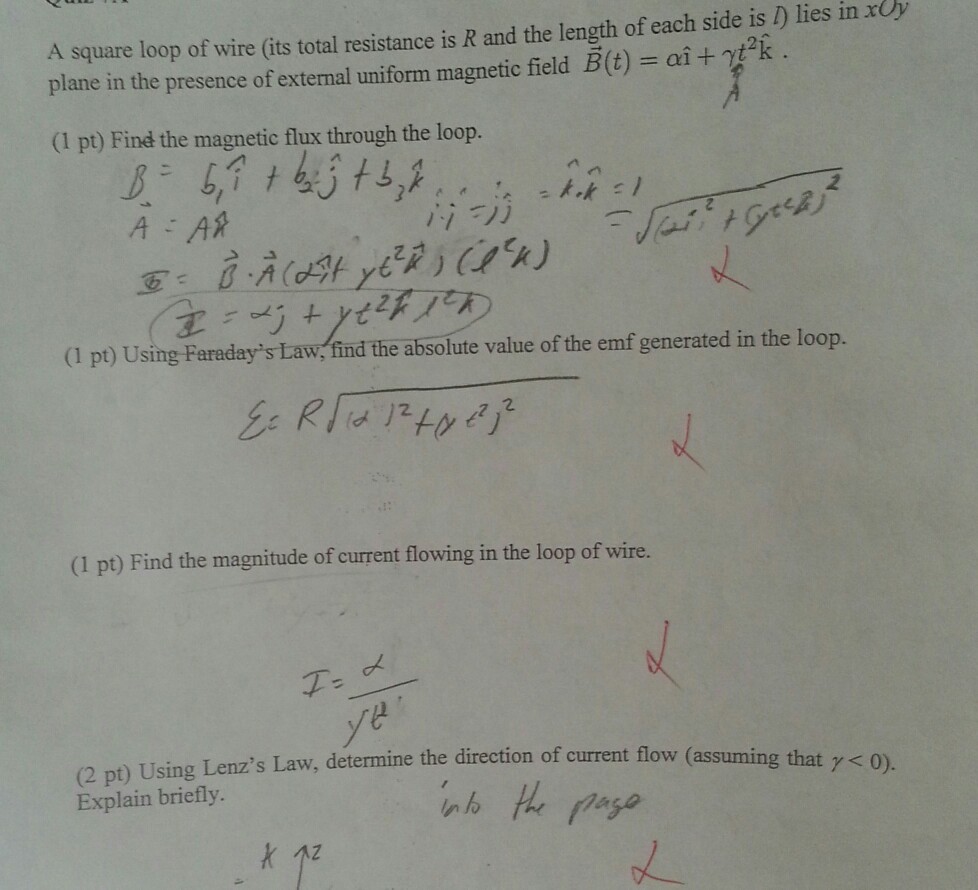 A square loop of wire (its total resistance is R and the length of each side is l) lies in xOy
plane in the presence of external uniform magnetic field B⃗(t) = αî + γt²k̂ .
A
(1 pt) Find the magnetic flux through the loop.
B = b₁î + b₂ĵ + b₃k̂
î·î = ĵĵ = k̂·k̂ = 1
A⃗ = Ak̂
Φ = B⃗·A⃗(αî + γt²k̂)(l²k)
Φ = αj + γt²k̂ l²k
(1 pt) Using Faraday's Law, find the absolute value of the emf generated in the loop.
ε = R√(α)²+(γt²)²
(1 pt) Find the magnitude of current flowing in the loop of wire.
I = α
γt²
(2 pt) Using Lenz's Law, determine the direction of current flow (assuming that γ < 0).
Explain briefly.
into the page
k ↑z